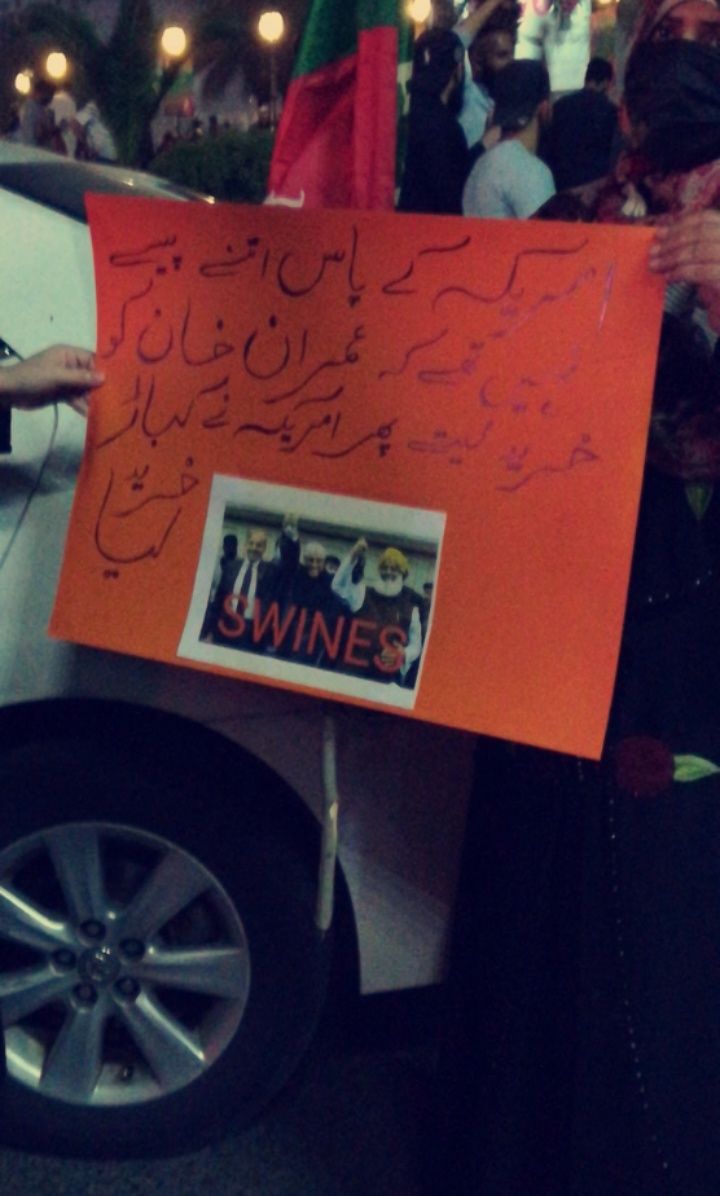 امریکہ کے پاس اتنے پیسے
نہیں تھے کہ عمران خان کو
خرید لیتے پھر امریکہ نے کباڑ
خرید
لیا
SWINES